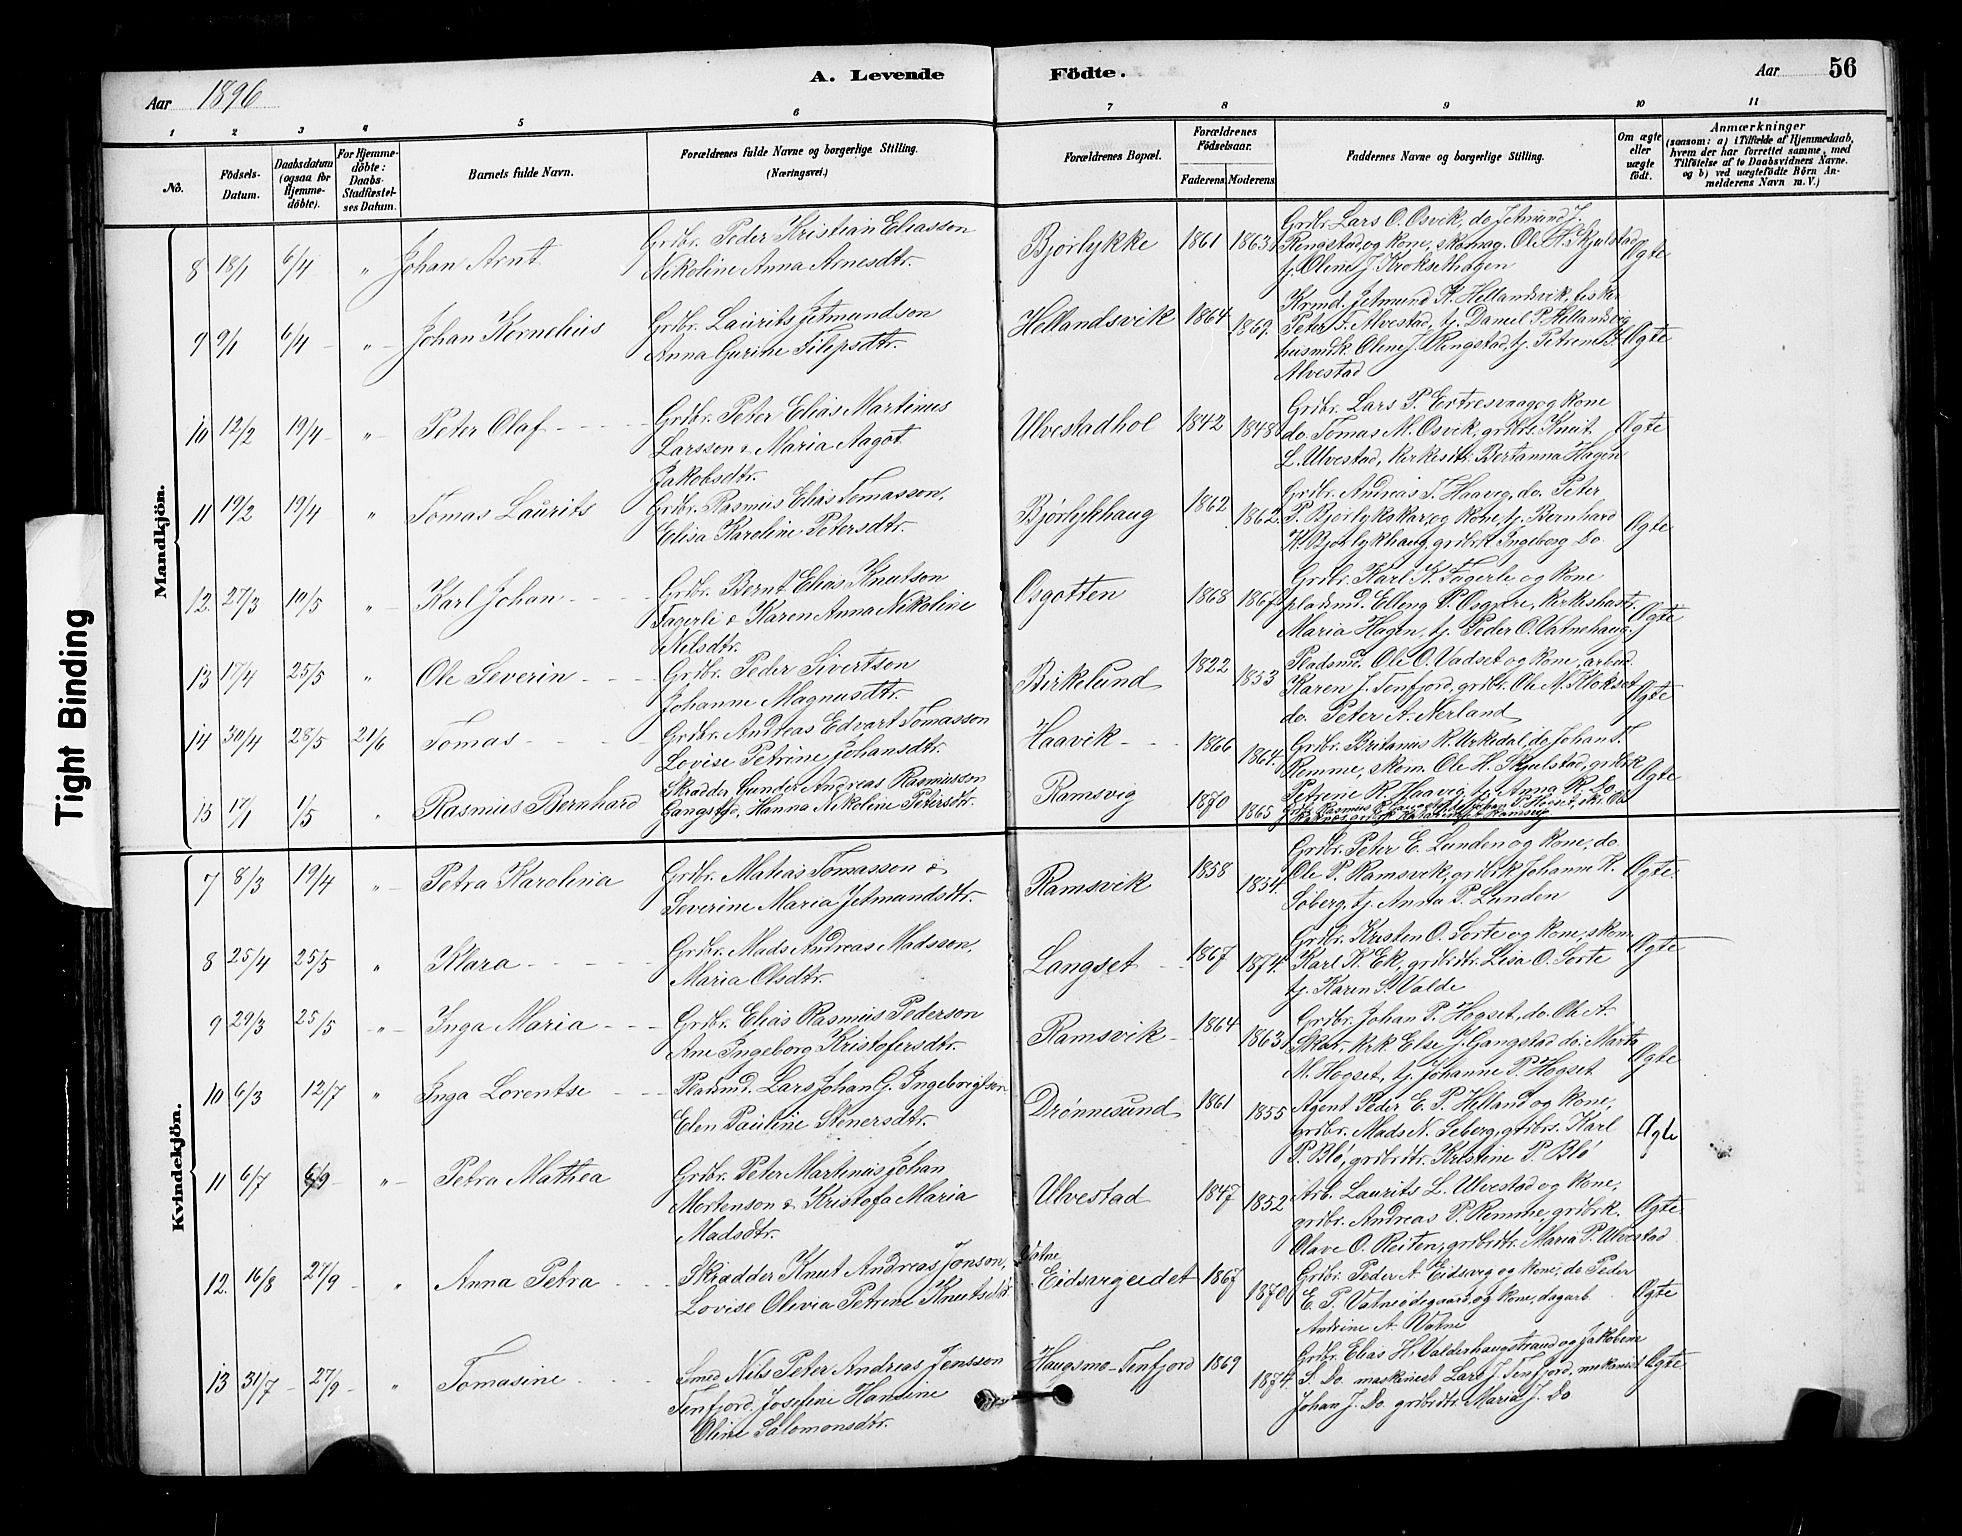 A. Levende Födte.
Aar 1896
Aar 56
1 2 3 4 5 6 7 8 9 10 11
No.
Födsels-Datum.
Daabsdatum (ogsaa for Hjemme-döbte).
For Hjemme-döbte: Daabs-Stadfæstel-ses Datum.
Barnets fulde Navn.
Forældrenes fulde Navne og borgerlige Stilling.
(Næringsvei.)
Forældrenes Bopæl.
Forældrenes Födselsaar.
Faderens. Moderens.
Faddernes Navne og borgerlige Stilling.
Om ægte eller uægte födt.
Anmærkninger
(saasom: a) i Tilfælde af Hjemmedaab, hvem der har forrettet samme, med Tilföielse af to Daabsvidners Navne. og b) ved uægtefödte Börn Anmelderens Navn m. V.)
Mandkjön.
8 18/1 6/4 " Johan Arnt
Grdbr. Peder Kristian Eliasson
Nikoline Anna Arnesdtr.
Bjørlykke 1861 1863
Grdbr. Lars O. Osvik, do Jetmund J.
Ringstad og kone, skomag. Ole H. Skjelstad
tj. Oline J. Kroksethagen
Ægte
9 9/1 6/4 " Johan Kornelius
Grdbr. Laurits Jetmundson
Anna Gurine Filipsdtr.
Hellandsvik 1864 1869.
Krmd. Jetmund K. Hellandsvik, fisker
Peter F. Alvestad, tj. Daniel P. Hellandsvig
husmdk. Oline J. Ringstad, tj. Petrine
Alvestad
Ægte
10 12/2 19/4 " Peter Olaf
Grdbr. Peter Elias Martinus
Larsson & Maria Aagot
Jakobsdtr.
Ulvestadhol 1842 1848
Grdbr. Lars P. Eertresvaag og kone
do. Tomas M. Osvik, grdbrs. Knut
L. Ulvestad, kirkesdtr. Bertanna Hagen
Ægte
11 19/2 19/4 " Tomas Laurits
Grdbr. Rasmus Elias Tomasson,
Elisa Karoline Petersdtr.
Bjørlykhaug 1862 1862.
Grdbr. Andreas T. Haavig, do. Peter
P. Bjørlykskar og kone, tj. Bernhard
K. Bjørlykhaug, grdbrk Ingeborg Do
Ægte
12. 27/3 10/5 " Karl Johan
Grdbr. Bernt Elias Knutson
Fagerli & Karen Anna Nikoline
Nilsdtr.
Osgotten 1868 1867
Grdbr. Karl K. Fagerle og kone
pladsmd. Elleng P. Osgotte,
Maria Hagen, tj. Peder O. Vatnehaug
Ægte
13 17/4 25/5 " Ole Severin
Grdbr. Peder Sivertson
Johanne Magnusdtr.
Birkelund 1822 1853
Pladsmd. Ole O. Vadset og kone, arbeid.
Karen J. Tenfjord, grdbr. Ole M. Klokset
do. Peter A. Nerland
Ægte
14 30/4 28/5 21/6 Tomas
Grdbr. Andreas Edvart Tomasson
Lovise Petrine Johansdtr.
Haavik 1866 1864.
Grdbr. Britanus R. Urkedal, do Johan T.
Remme, skom. Ole H. Skjelstad, grdbrk
Petrene R. Haavig, tj. Anna R. Do
Ægte
15 17/1 1/5 " Rasmus Bernhard
Skrædder Gunder Andreas Rasmusson
Gangstad, Hanna Nikoline Petersdtr.
Ramsvig 1870 1865
Kvindekjön.
7 8/3 19/4 " Petra Karolina
Grdbr. Matias Tomasson &
Severine Maria Jetmundsdtr.
Ramsvik 1858 1854.
Grdbr. Peter E. Lunden og kone, do.
Ole P. Ramsvik, grdbrk Johanne K.
Søberg, tj. Anna P. Lunden
Ægte.
8 25/4 25/5 " Klara
Grdbr. Mads Andreas Madsson,
Maria Olsdtr.
Langset 1867 1874.
Grdbr. Kristen O. Sorte og kone, skom.
Karl K. Ek, grdbrdtr. Lisa O. Sorte
tj. Karen S. Valde
Ægte
9 29/3 25/5 " Inga Maria
Grdbr. Elias Rasmus Pederson
Ane Ingeborg Kristofersdtr.
Ramsvik 1864 1863
Grdbr. Johan P. Hogset, do. Ole A.
Skar, krk Else J. Gangstad do. Marta
M. Hogset, tj. Johanne P. Hogset
Ægte
10 6/3 12/7 " Inga Lorentse
Pladsmd. Lars Johan G. Ingebrigtson
Elen Pauline Stenersdtr.
Drønnesund 1861 1855
Agent Peder E. P. Helland og kone,
grdbr. Mads N. Seberg, grdbrs. Karl
P. Blø, grdbrdtr. Kristine P. Blø
Ægte
11 6/7 6/9 " Petra Mathea
Grdbr. Peter Martinus Johan
Mortenson & Kristofa Maria
Madsdtr.
Ulvestad 1847 1852
Arb. Laurits L. Ulvestad og kone,
grdbr. Andreas P. Remme, grdbrk.
Olave O. Reiten, grdbrdtr. Maria P. Ulvestad
Ægte.
12. 16/8 27/9 " Anna Petra
Skrædder Knut Andreas Jonson,
Lovise Olivia Petrine Knutsdtr
Vatne
Eidsvigeidet 1867 1870
Grdbr. Peder A. Eidsvig og kone, do Peder
E. P. Vatneødegaard og kone, dagarb.
Andrine A. Vatne
Ægte
13 31/7 27/9 " Tomasine
Smed Nils Peter Andreas Jensson
Tenfjord. Josefine Hansine
Oline Salomonsdtr.
Haugsmo-Tenfjord 1869 1874.
Grdbr. Elias H. Valderhaugstrand og Jakobine
S. Do. maskinist Lars J. Tenfjord, mekanist
Johan J. Do grdbrdtr Maria J. Do
Ægte
Tight Binding